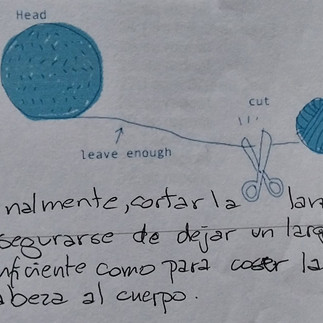 Head
cut
leave enough
nalmente, cortar la lana
segurarse de dejar un larg
uficiente como para coser la
abeza al cuerpo.